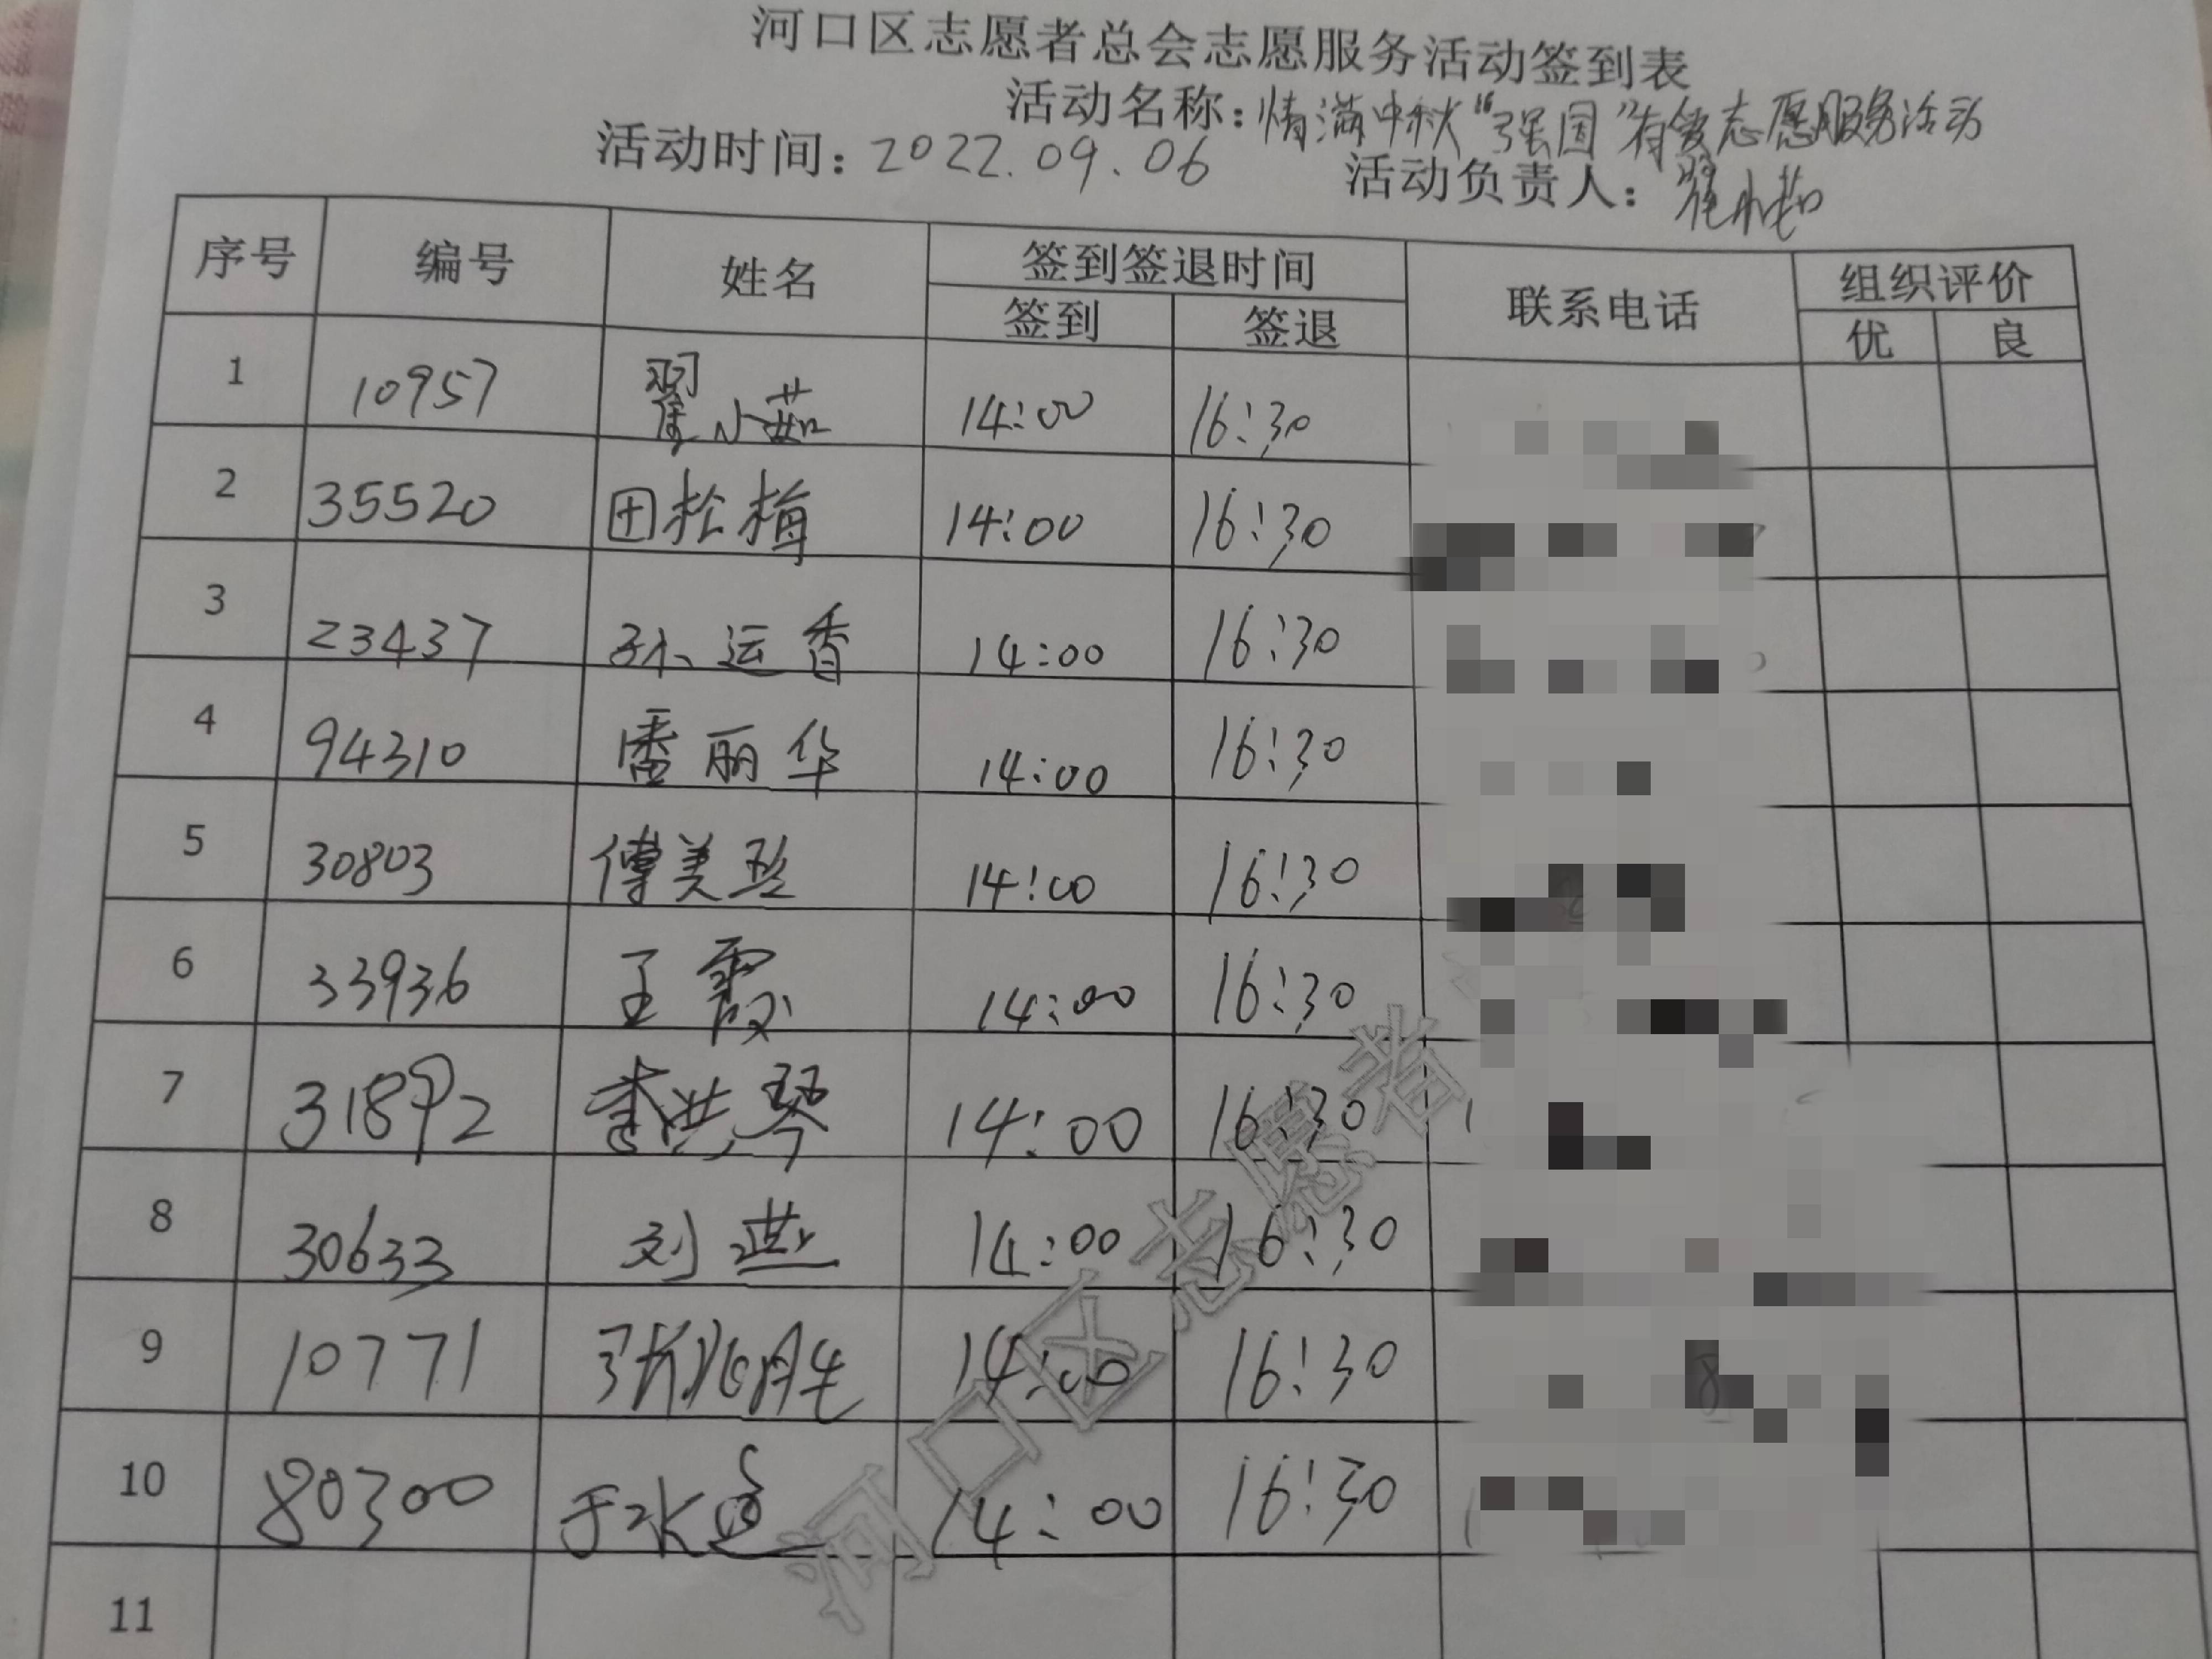 河口区志愿者总会志愿服务活动签到表
活动名称：情满中秋“强国”有爱志愿服务活动
活动时间：2022.09.06 活动负责人：翟小茹
序号 编号 姓名 签到签退时间 联系电话 组织评价
签到 签退 优 良
1 10957 翟小茹 14:00 16:30
2 35520 田松梅 14:00 16:30
3 23437 孙运香 14:00 16:30
4 94310 潘丽华 14:00 16:30
5 30803 傅美玲 14:00 16:30
6 33936 王霞 14:00 16:30
7 31892 李洪琴 14:00 16:30
8 30633 刘燕 14:00 16:30
9 10771 张兆胜 14:00 16:30
10 80300 于水道 14:00 16:30
11
河口区志愿者